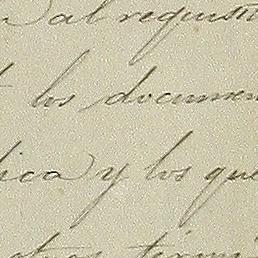 al requisi
los documen
lica y los que
otros térmi